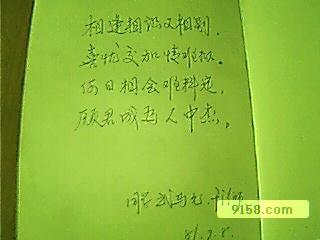 相逢相识又相别，
喜忧交加情难抑。
何日相会难料定，
愿君成为人中杰。
同学
81.7.8.
9158.com